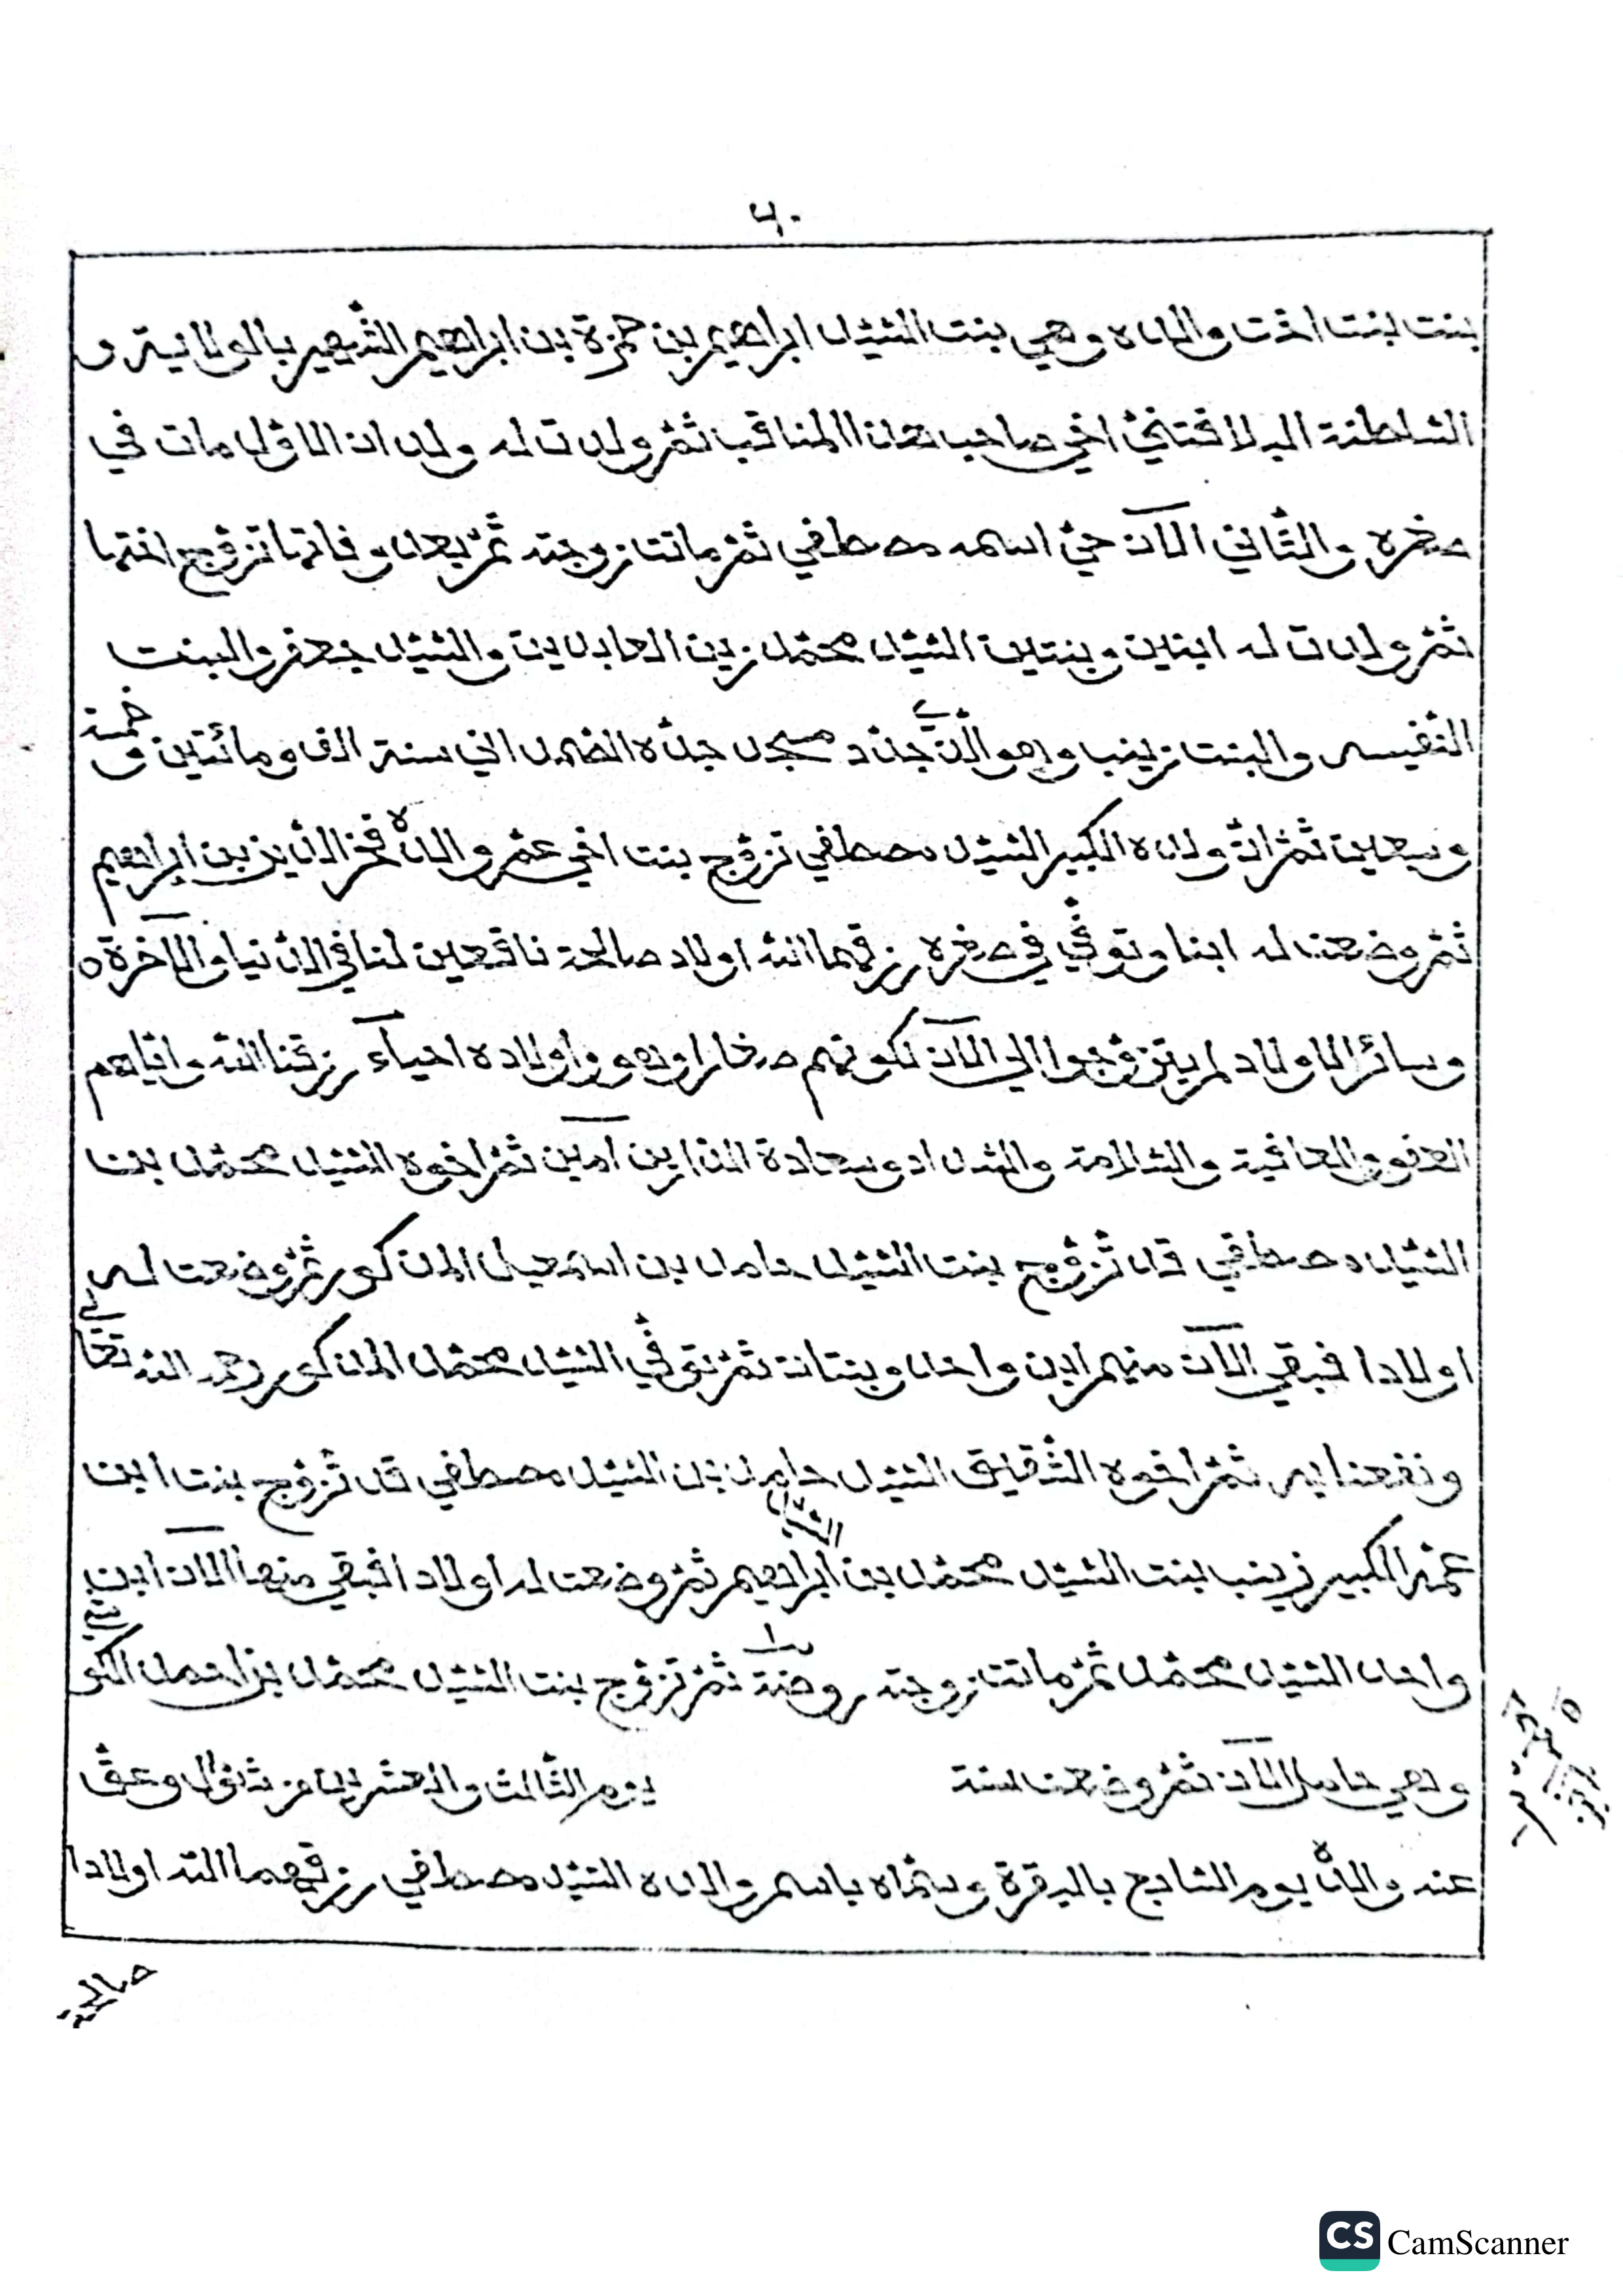 ٦٠
بنت بنت اخت والده وهي بنت السّيّد ابراهيم بن حمزة بن ابراهيم الشّهير بالولاية و
السّلطنة اخي صاحب هذا المناقب ثمّ ولدت له ولدان الاوّل مات في
صغره والثّاني الآن حيّ اسمه مصطفي ثمّ ماتت زوجته ثمّ بعد وفاتها تزوّج اختها
ثمّ ولدت له ابنين وبنتين السّيّد محمّد زين العابدين والسّيّد جعفر والبنت
النّفيسه والبنت زينب وهو الّذي جدّد مسجد جدّه الضمد الي سنة الف ومائتين و خمسة
وسبعين ثمّ انّ ولده الكبير السّيّد مصطفي تزوّج بنت اخي عمّ والده فخر الدّين بن إبراهيم
ثمّ وضعت له ابنا وتوفّي في صغره رزقهما الله اولاد صالحة نافعين لنا في الدّنيا والآخرة ٥
وسائر الاولاد لم يتزوّجوا الي الآن لكونهم صغارا وهو واولاده احياء رزقنا الله وايّاهم
العفو والعافية والسّلامة والسّداد وسعادة الدّارين آمين ثمّ اخوه السّيّد محمّد بن
السّيّد مصطفي قد تزوّج بنت السّيّد حامد بن اسمعيل المذكور ثمّ وضعت له
اولادا فبقي الآن منهم ابن واحد وبنتان ثمّ توفّي السّيّد محمّد المذكور رحمه الله تعالي
ونفعنا به ثمّ اخوه الشّقيق السّيّد حامد بن السّيّد مصطفي قد تزوّج بنت ابن
عمّه الكبير زينب بنت السّيّد محمّد بن السّيّد ابراهيم ثمّ وضعت له اولادا فبقي منها الآن ابن
واحد السّيّد محمّد ثمّ ماتت زوجته روضة ثمّ تزوّج بنت السّيّد محمّد بن احمد
وهي حامل الآن ثمّ وضعت سنة يوم الثّالث والعشرين من شوّال وعقّ
عنه والده يوم السّابع بالبقرة وسمّاه باسم والده السّيّد مصطفي رزقهما الله اولادا
صالحة
CS CamScanner